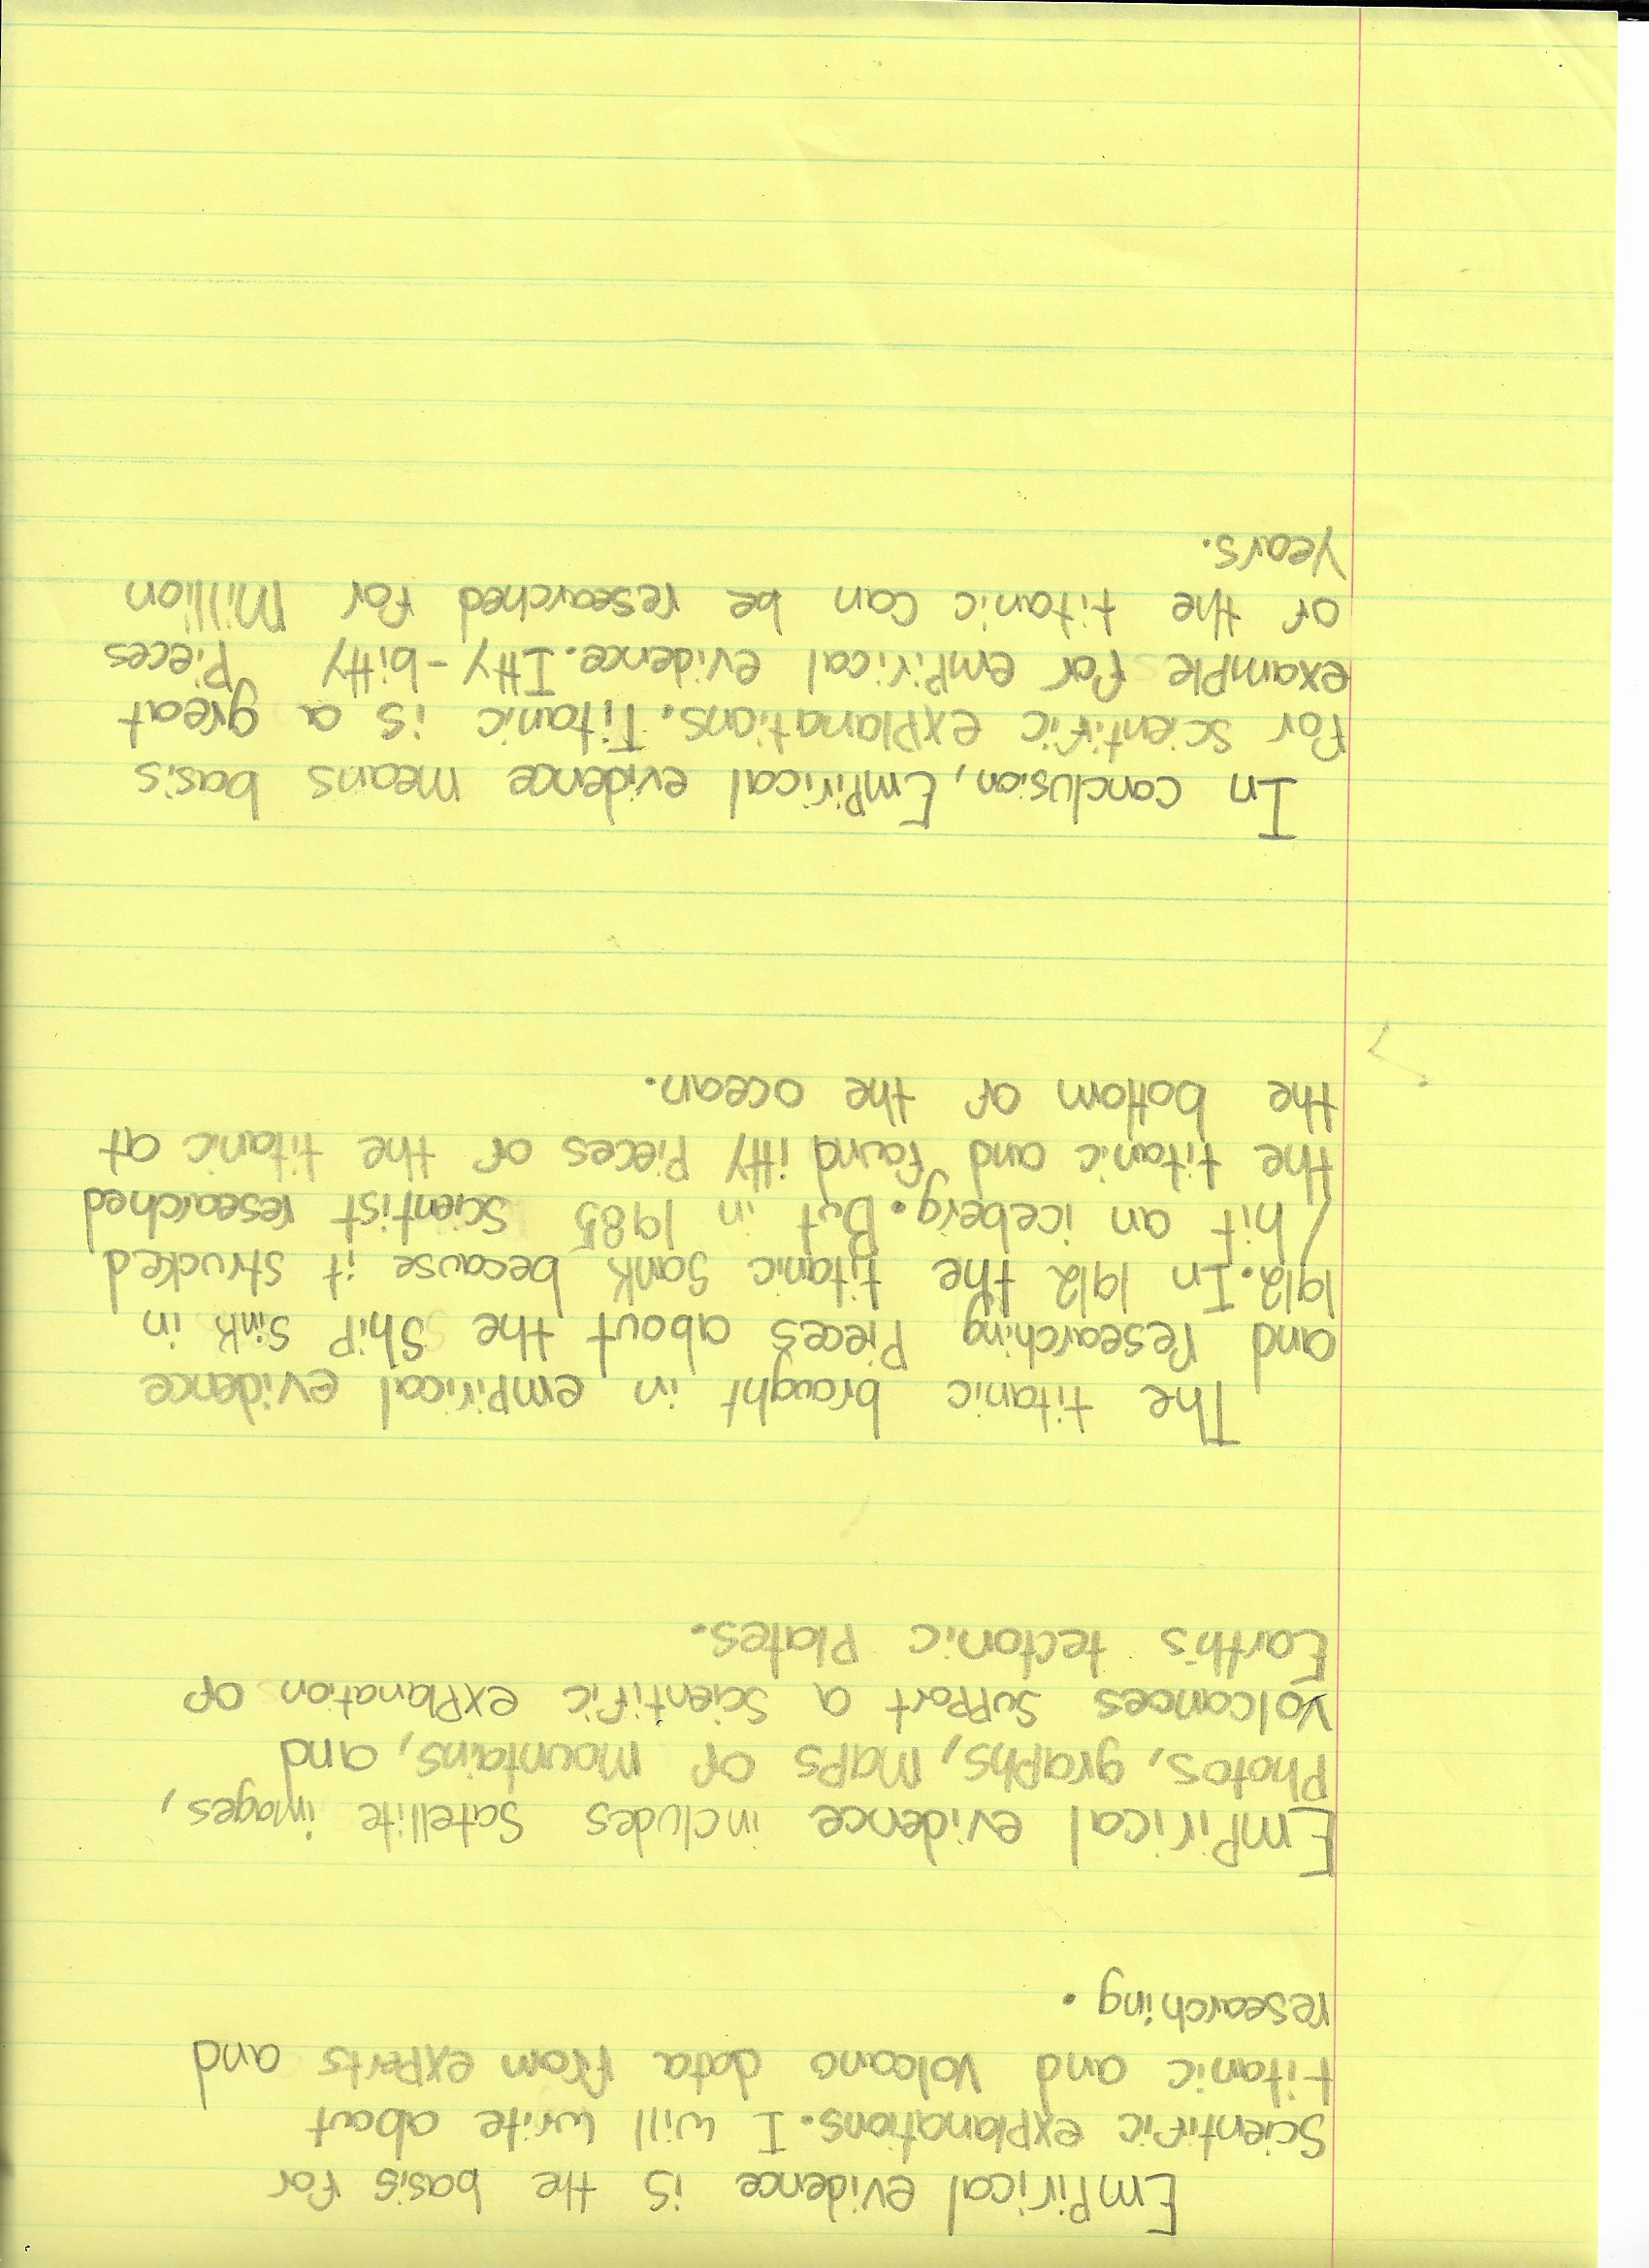 Empirical evidence is the basis for
Scientific explanations. I will write about
titanic and volcano data from experts and
researching.
Empirical evidence includes satellite images,
Photos, graphs, maps of mountains, and
volcanoes support a scientific explanation of
Earth's tectonic plates.
The titanic brought in empirical evidence
and researching pieces about the ship sink in
1912. In 1912 the titanic sank because it strucked
/hit an iceberg. But in 1985 scientist researched
the titanic and found itty pieces of the titanic at
the bottom of the ocean.
In conclusion, Empirical evidence means basis
for scientific explanations. Titanic is a great
example for empirical evidence. Itty-bitty pieces
of the titanic can be researched for million
years.